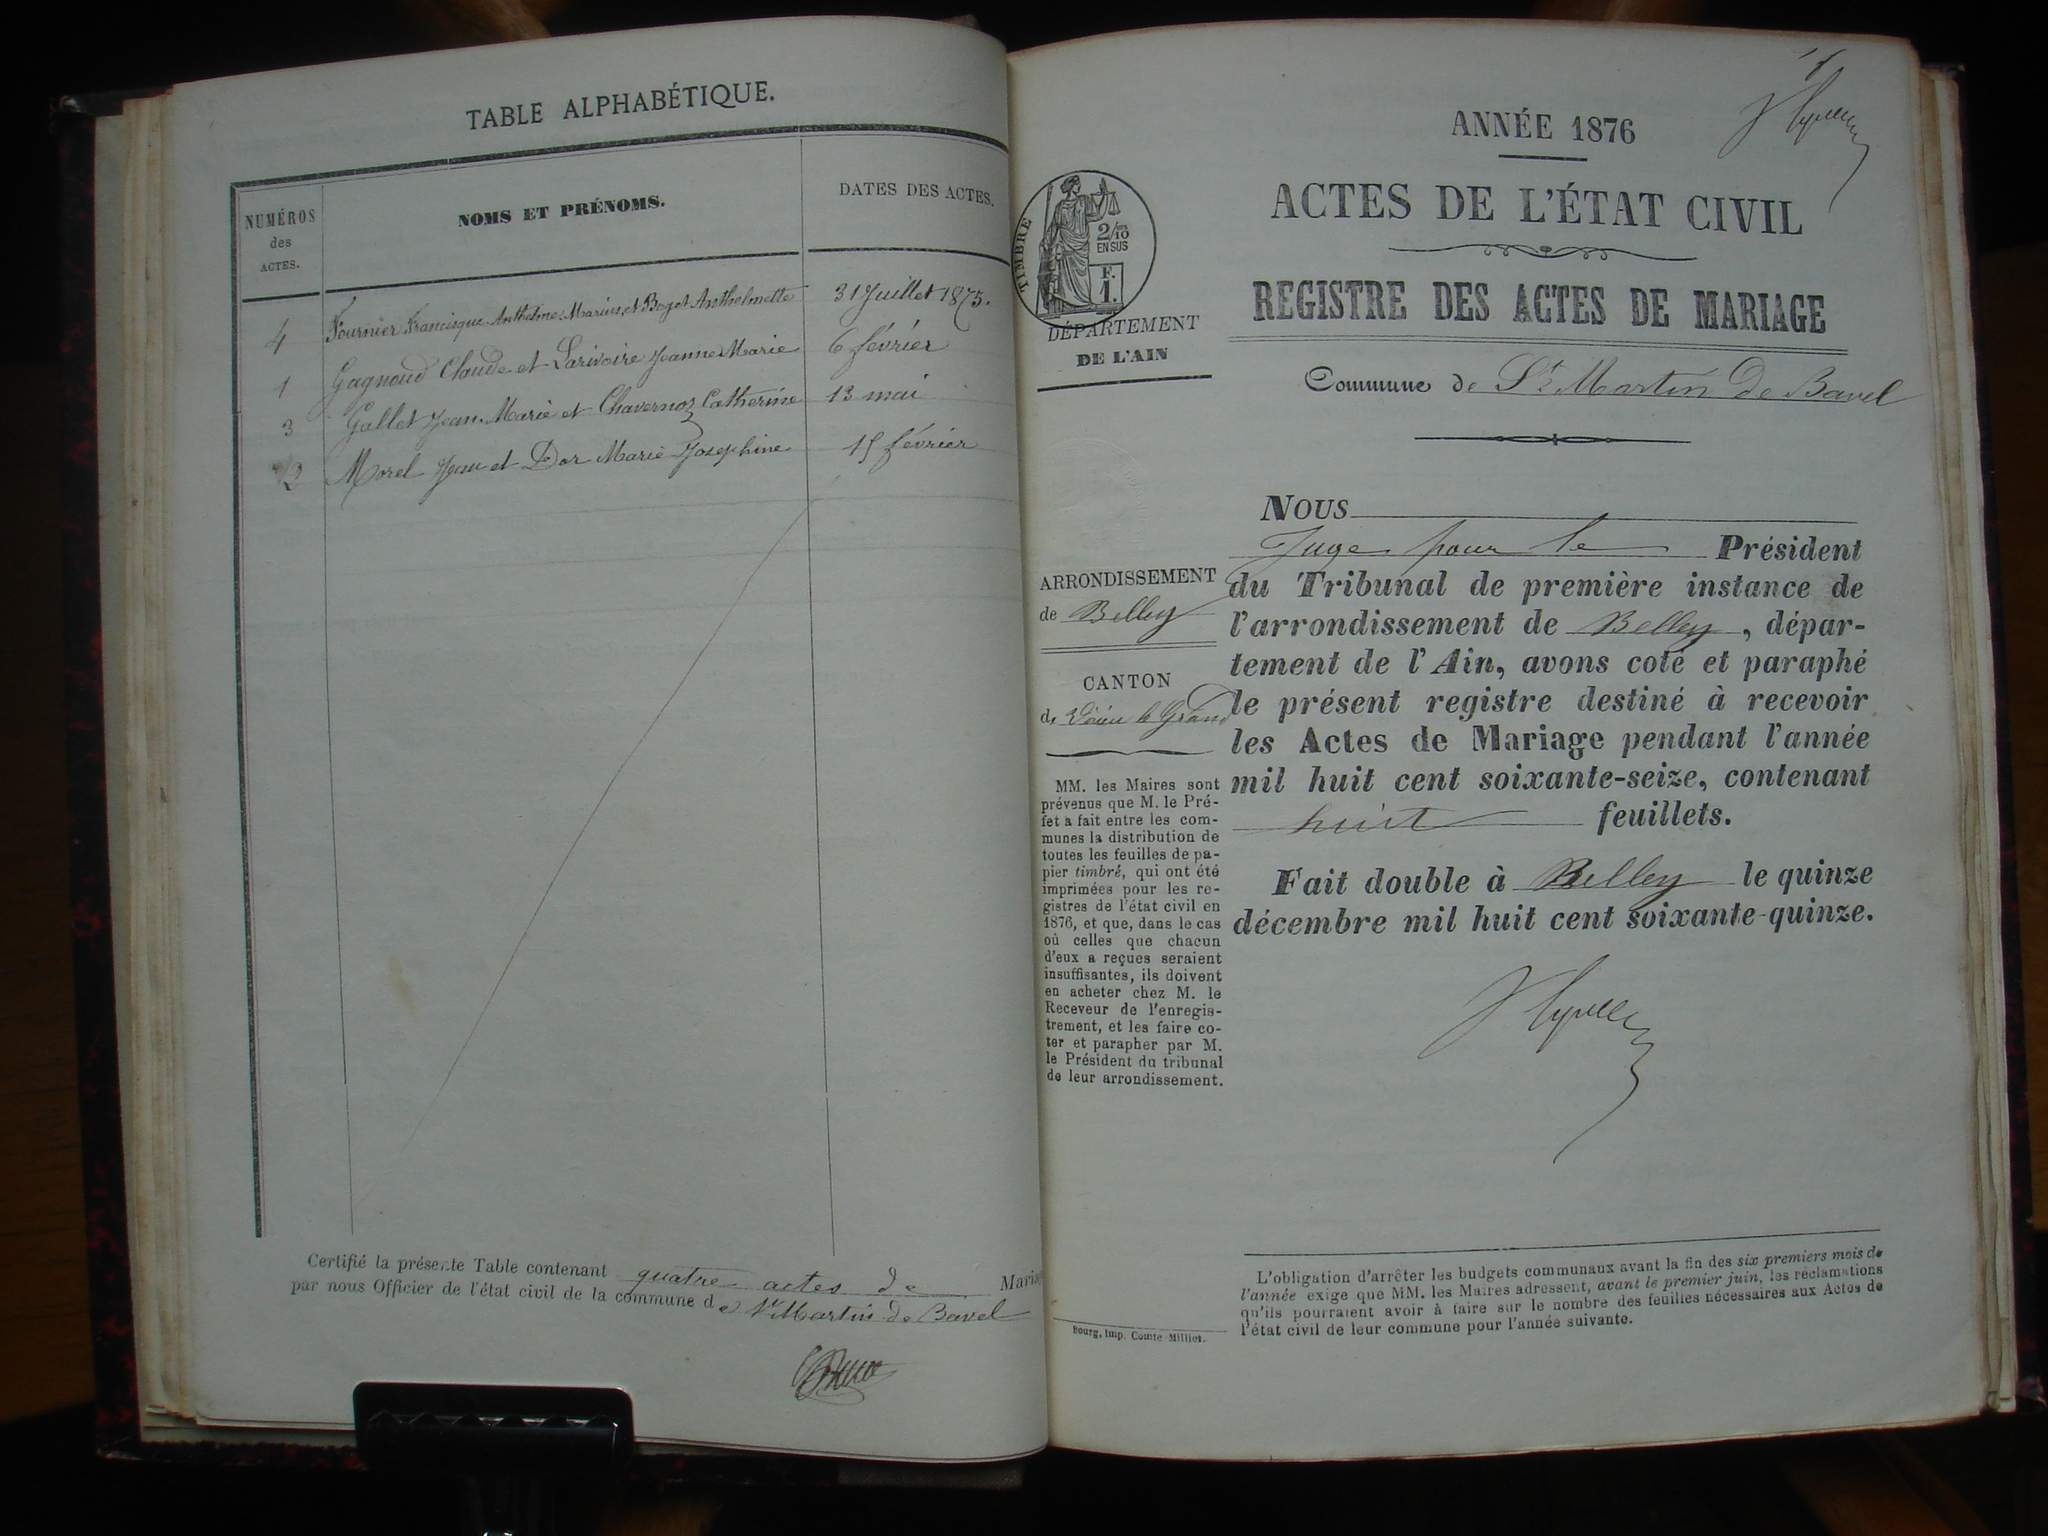 TABLE ALPHABÉTIQUE.
NUMÉROS des ACTES.
NOMS ET PRÉNOMS.
DATES DES ACTES.
4 Fournier Francisque Anthelme Marius et Boget Anthelmette 31 Juillet 1875.
1 Gagnoud Claude et Larivoire Jeanne Marie 6 février
3 Gallet Jean Marie et Chavernoz Catherine 13 mai
2 Morel Jean et Dor Marie Josephine 15 février
Certifié la présente Table contenant quatre actes de Maria
par nous Officier de l'état civil de la commune de St Martin de Bavel
ANNÉE 1876
ACTES DE L'ÉTAT CIVIL
REGISTRE DES ACTES DE MARIAGE
TIMBRE
2/10 EN SUS
F. 1.
DÉPARTEMENT
DE L'AIN
Commune de St Martin de Bavel
ARRONDISSEMENT
de Belley
CANTON
de Virieu le Grand
MM. les Maires sont
prévenus que M. le Pré-
fet a fait entre les com-
munes la distribution de
toutes les feuilles de pa-
pier timbré, qui ont été
imprimées pour les re-
gistres de l'état civil en
1876, et que, dans le cas
où celles que chacun
d'eux a reçues seraient
insuffisantes, ils doivent
en acheter chez M. le
Receveur de l'enregis-
trement, et les faire co-
ter et parapher par M.
le Président du tribunal
de leur arrondissement.
NOUS
Juge pour le Président
du Tribunal de première instance de
l'arrondissement de Belley, dépar-
tement de l'Ain, avons coté et paraphé
le présent registre destiné à recevoir
les Actes de Mariage pendant l'année
mil huit cent soixante-seize, contenant
huit feuillets.
Fait double à Belley le quinze
décembre mil huit cent soixante-quinze.
L'obligation d'arrêter les budgets communaux avant la fin des six premiers mois de
l'année exige que MM. les Maires adressent, avant le premier juin, les réclamations
qu'ils pourraient avoir à faire sur le nombre des feuilles nécessaires aux Actes de
l'état civil de leur commune pour l'année suivante.
Bourg, Imp. Comte-Milliet.